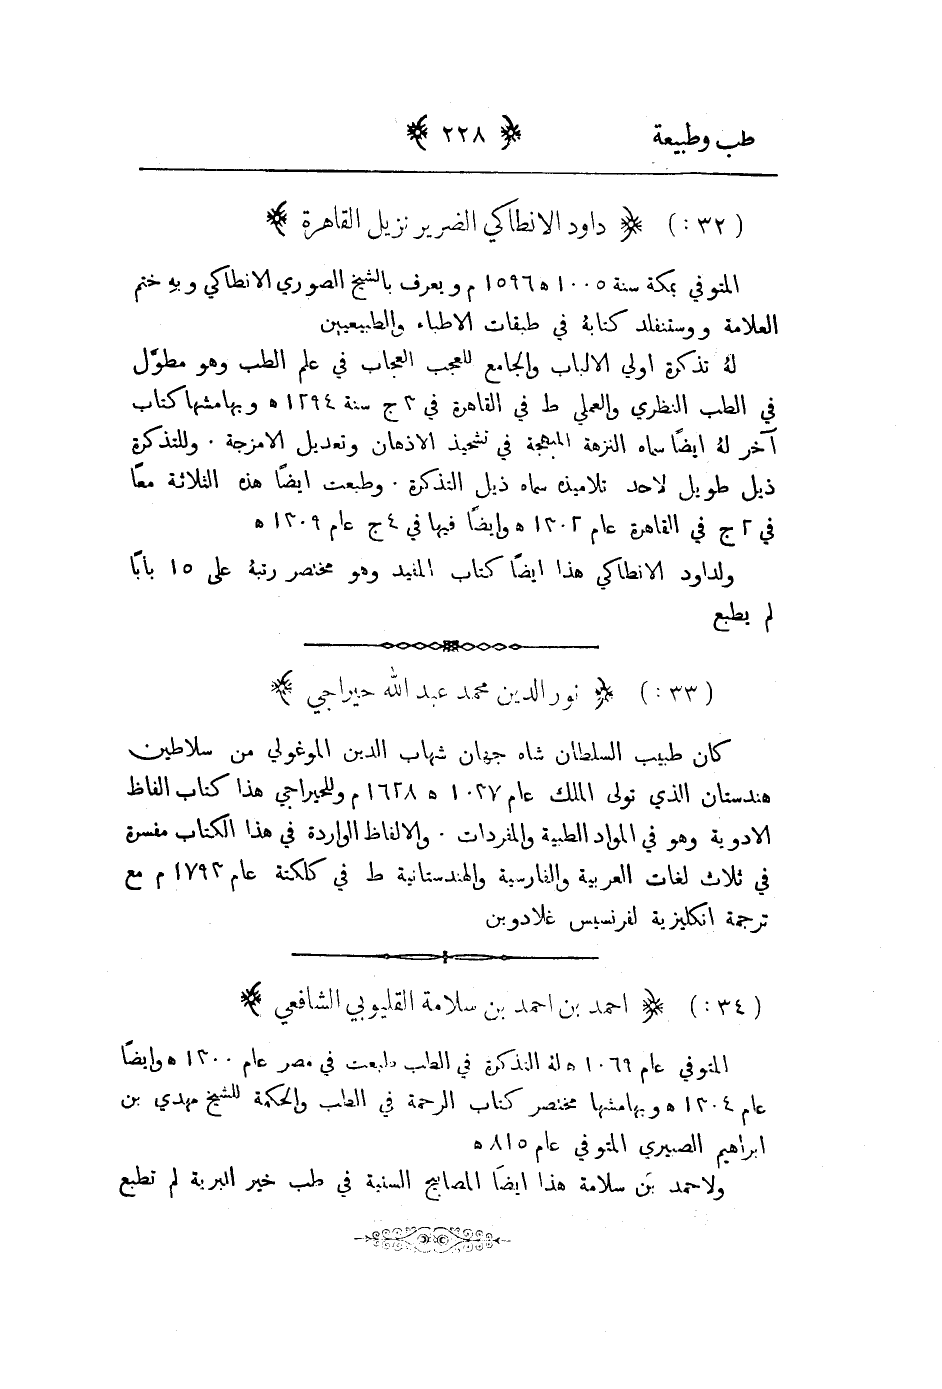 طب وطبيعة ﴿ ٢٢٨ ﴾
(٣٢:) ﴿ داود الانطاكي الضرير نزيل القاهرة ﴾
المتوفي بمكة سنة ١٠٠٥ ه ١٥٩٦ م ويعرف بالشيخ الصوري الانطاكي وبهِ ختم
العلامة ووستنفلد كتابهُ في طبقات الاطباء والطبيعيين
لهُ تذكرة اولي الالباب والجامع للعجب العجاب في علم الطب وهو مطوّل
في الطب النظري والعملي ط في القاهرة في ٣ ج سنة ١٢٩٤ ه وبهامشها كتاب
آخر لهُ ايضًا سماه النزهة المبهجة في تشحيذ الاذهان وتعديل الامزجة ٠ وللتذكرة
ذيل طويل لاحد تلاميذه سماه ذيل التذكرة ٠ وطبعت ايضًا هذه الثلاثة معًا
في ٢ ج في القاهرة عام ١٣٠٢ ه وايضًا فيها في ٤ ج عام ١٣٠٩ ه
ولداود الانطاكي هذا ايضًا كتاب المنيد وهو مختصر رتبهُ على ١٥ بابًا
لم يطبع
(٣٣:) ﴿ نور الدين محمد عبد الله حيراجي ﴾
كان طبيب السلطان شاه جهان شهاب الدين الموغولي من سلاطين
هندستان الذي تولى الملك عام ١٠٣٧ ه ١٦٢٨ م وللحيراجي هذا كتاب الفاظ
الادوية وهو في المواد الطبية والمفردات ٠ والالفاظ الواردة في هذا الكتاب مفسرة
في ثلاث لغات العربية والفارسية والهندستانية ط في كلكتة عام ١٧٩٣ م مع
ترجمة انكليزية لفرنسيس غلادوين
(٣٤:) ﴿ احمد بن احمد بن سلامة القليوبي الشافعي ﴾
المتوفي عام ١٠٦٩ ه لهُ التذكرة في الطب طبعت في مصر عام ١٣٠٠ ه وايضًا
عام ١٣٠٤ ه وبهامشها مختصر كتاب الرحمة في الطب والحكمة للشيخ مهدي بن
ابراهيم الصبيري المتوفي عام ٨١٥ ه
ولاحمد بن سلامة هذا ايضًا المصابيح السنية في طب خير البرية لم تطبع